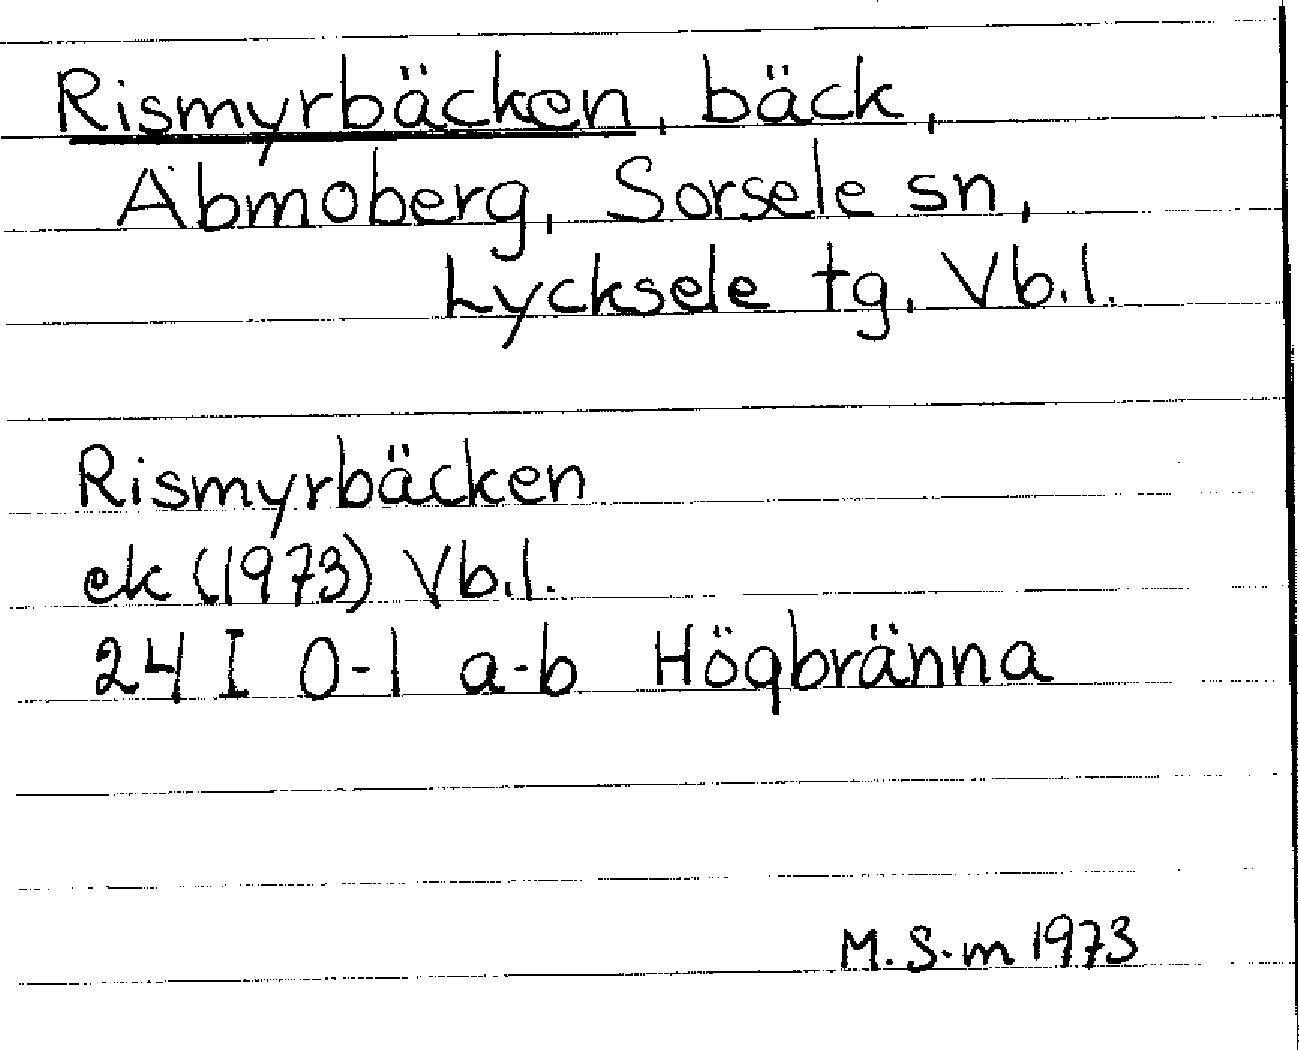 Rismyrbäcken, bäck,
Abmoberg, Sorsele sn,
Lycksele tg, Vb.l.
Rismyrbäcken
ek (1973) Vb.l.
24 I 0-1 a-b Högbränna
M. S-m 1973